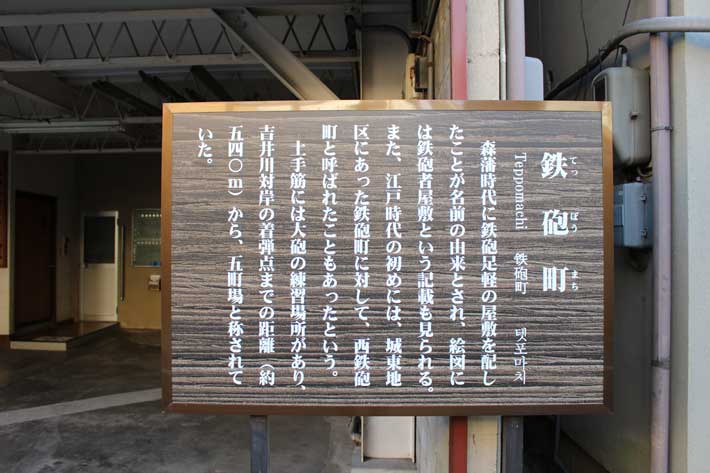 鉄砲町
てっ ぽう まち
Teppomachi 铁砲町 텟포마치
森藩時代に鉄砲足軽の屋敷を配し
たことが名前の由来とされ、絵図に
は鉄砲者屋敷という記載も見られる。
また、江戸時代の初めには、城東地
区にあった鉄砲町に対して、西鉄砲
町と呼ばれたこともあったという。
土手筋には大砲の練習場所があり、
吉井川対岸の着弾点までの距離（約
五四〇ｍ）から、五町場と称されて
いた。